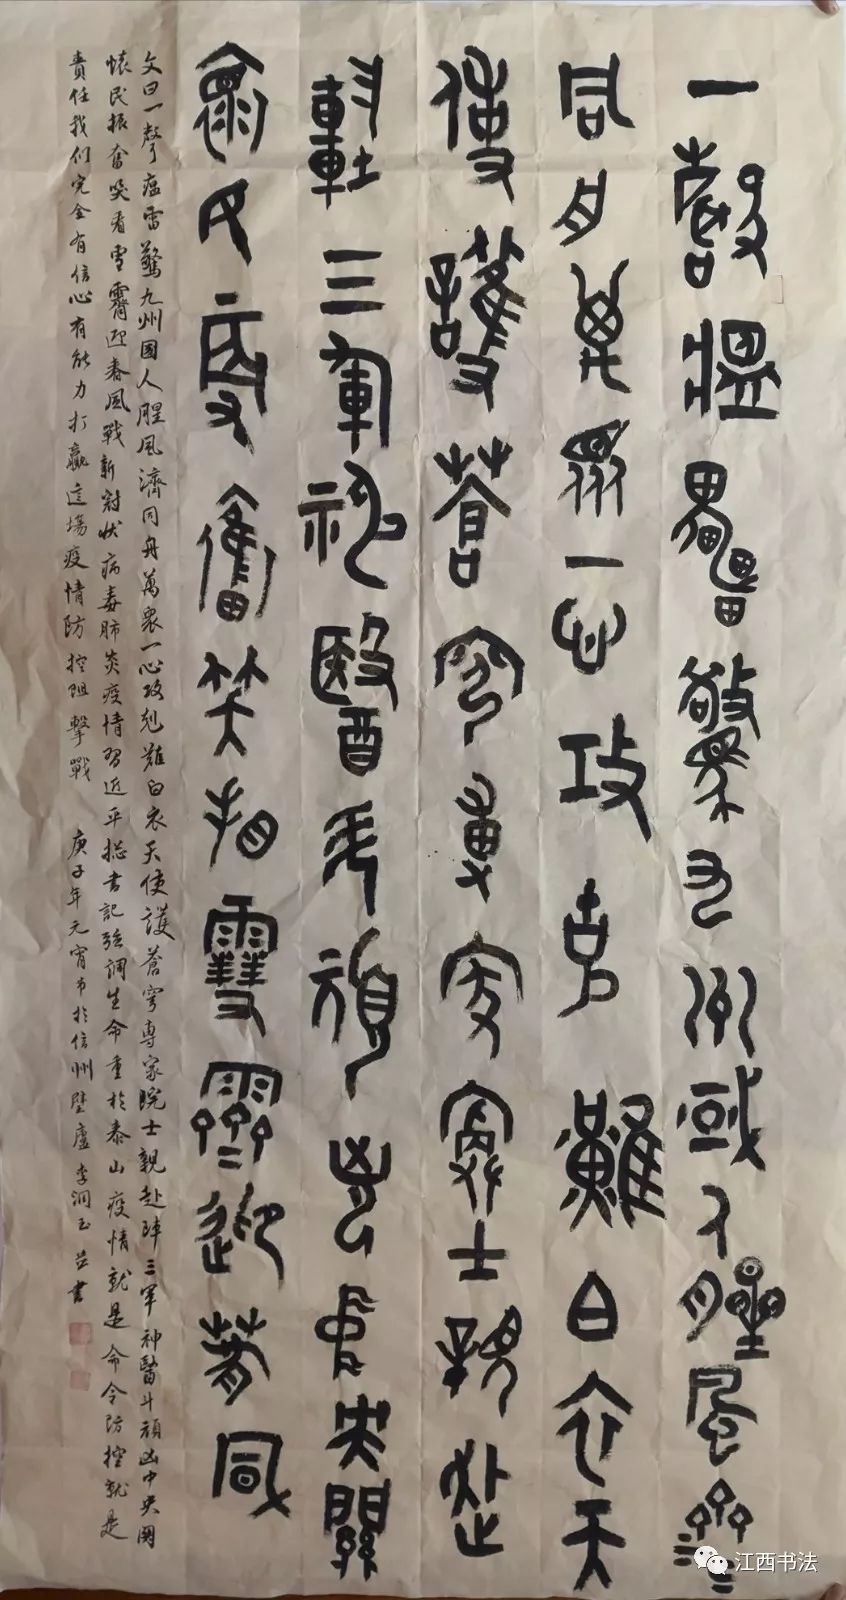 一聲瘟雷驚九州國人腥風濟
同舟萬眾一心攻克難白衣天
使護蒼穹專家院士親赴
陣三軍神醫斗頑凶中央關
懷民振奮笑看雪霽迎春風
文曰一聲瘟雷驚九州國人腥風濟同舟萬眾一心攻剋難白衣天使護蒼穹專家院士親赴陣三軍神醫斗頑凶中央関
懷民振奮笑看雪霽迎春風戰新冠狀病毒肺炎疫情習近平總書記強調生命重於泰山疫情就是命令防控就是
責任我们完全有信心有能力打贏這場疫情防控阻擊戰 庚子年元宵节於信州壁廬李润玉並書
江西书法